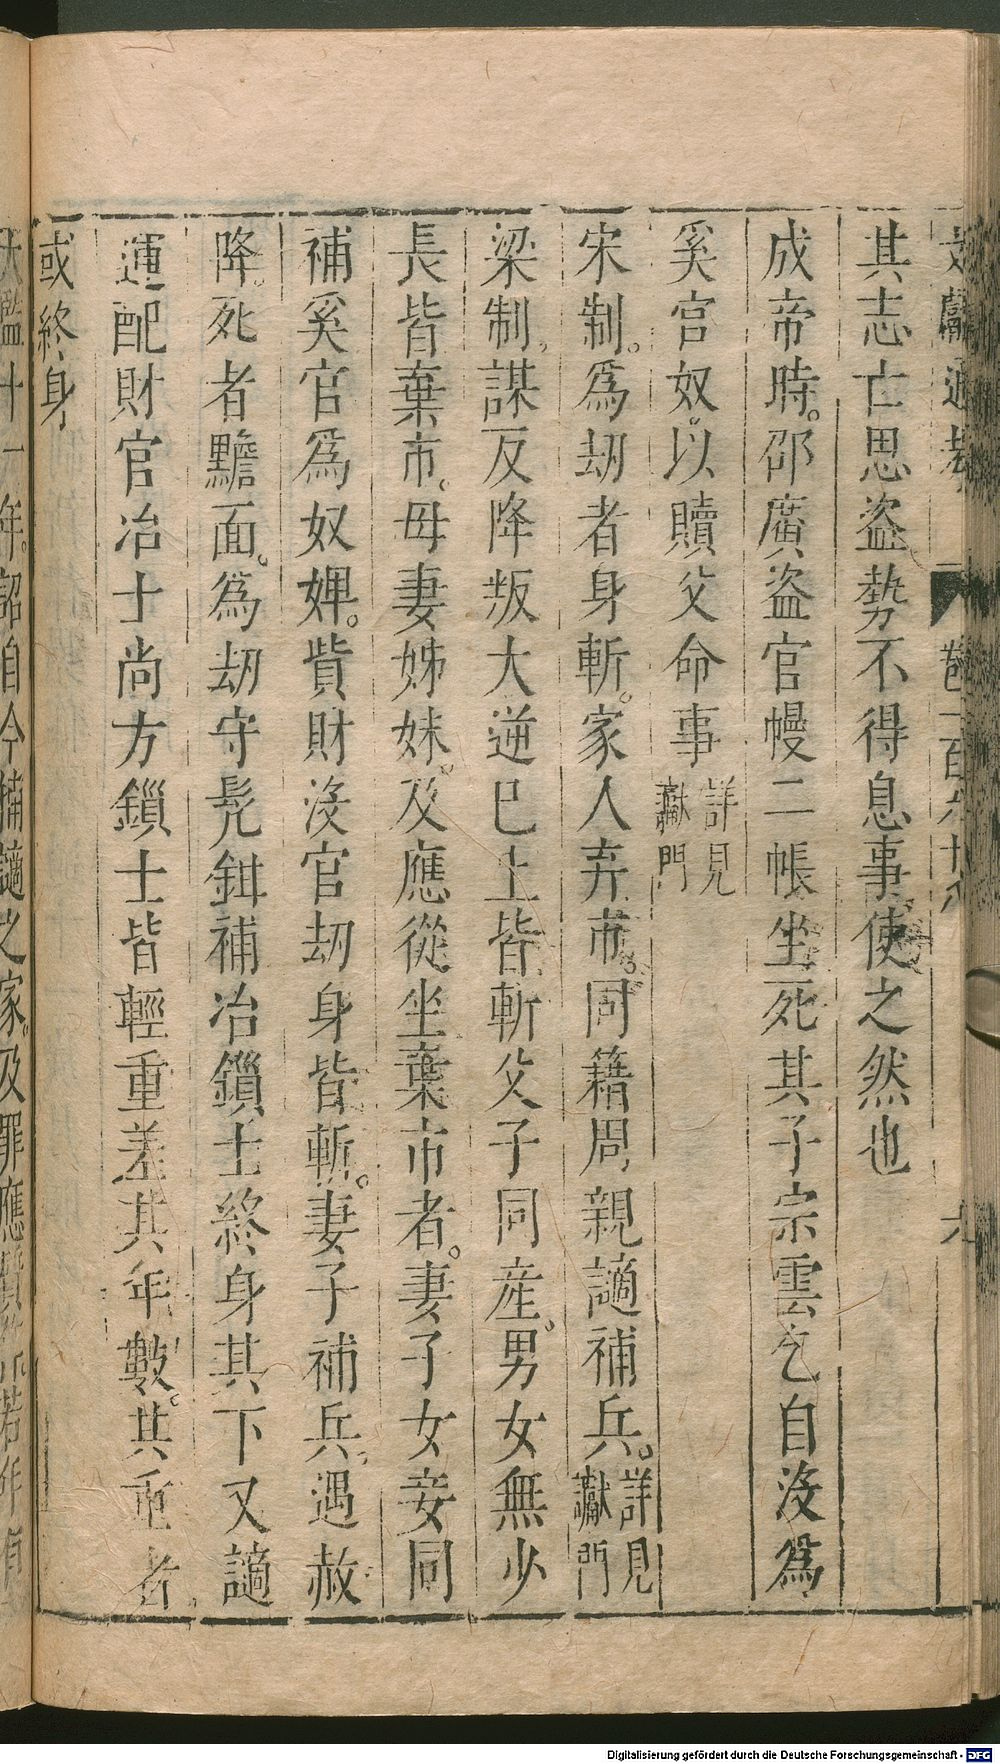 文獻通考 卷一百六十八 九
其志亡思盜勢不得息事使之然也
成帝時。邵廣盜官幔二帳坐死其子宗雲乞自沒為
奚官奴。以贖父命事詳見讞門
宋制。為刼者身斬。家人弃市。同籍周親謫補兵。詳見讞門
梁制。謀反降叛大逆巳上皆斬父子同産。男女無少
長皆棄市。母妻姊妹。及應從坐棄市者。妻子女妾同
補奚官為奴婢。貲財沒官刼身皆斬。妻子補兵。遇赦
降。死者黵面。為刼守髡鉗補冶鎖士終身其下又謫
運配財官冶士尚方鎖士皆輕重差其年數。其重者
或終身
天監十一年。詔自今捕謫之家。及罪應質作若年有
Digitalisierung gefördert durch die Deutsche Forschungsgemeinschaft - DFG